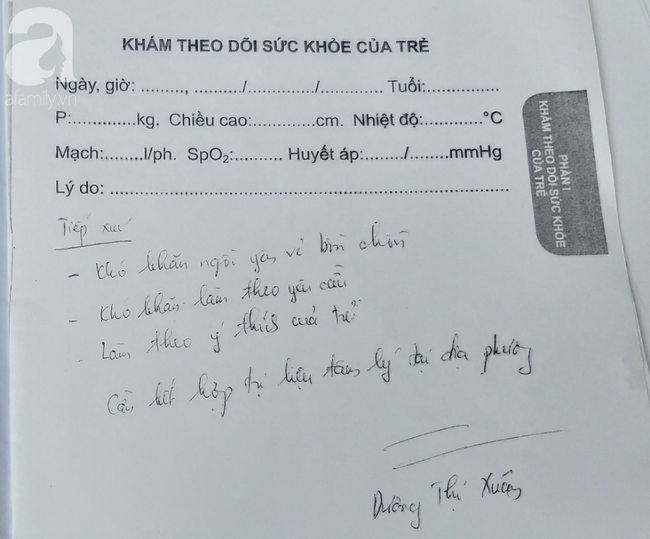 afamily.vn
KHÁM THEO DÕI SỨC KHỎE CỦA TRẺ
Ngày, giờ: ........., ........./............../............ Tuổi:...............
P:.............kg. Chiều cao:.............cm. Nhiệt độ:............°C
Mạch:........l/ph. SpO₂:.......... Huyết áp:......../........mmHg
Lý do: ................................................................
PHẦN I
KHÁM THEO DÕI SỨC KHỎE
CỦA TRẺ
Tiếp xúc
- Khó khăn ngồi yên vì bồn chồn
- Khó khăn làm theo yêu cầu
- Làm theo ý thích của trẻ
Cần kết hợp trị liệu tâm lý tại địa phương
Dương Thị Xuân